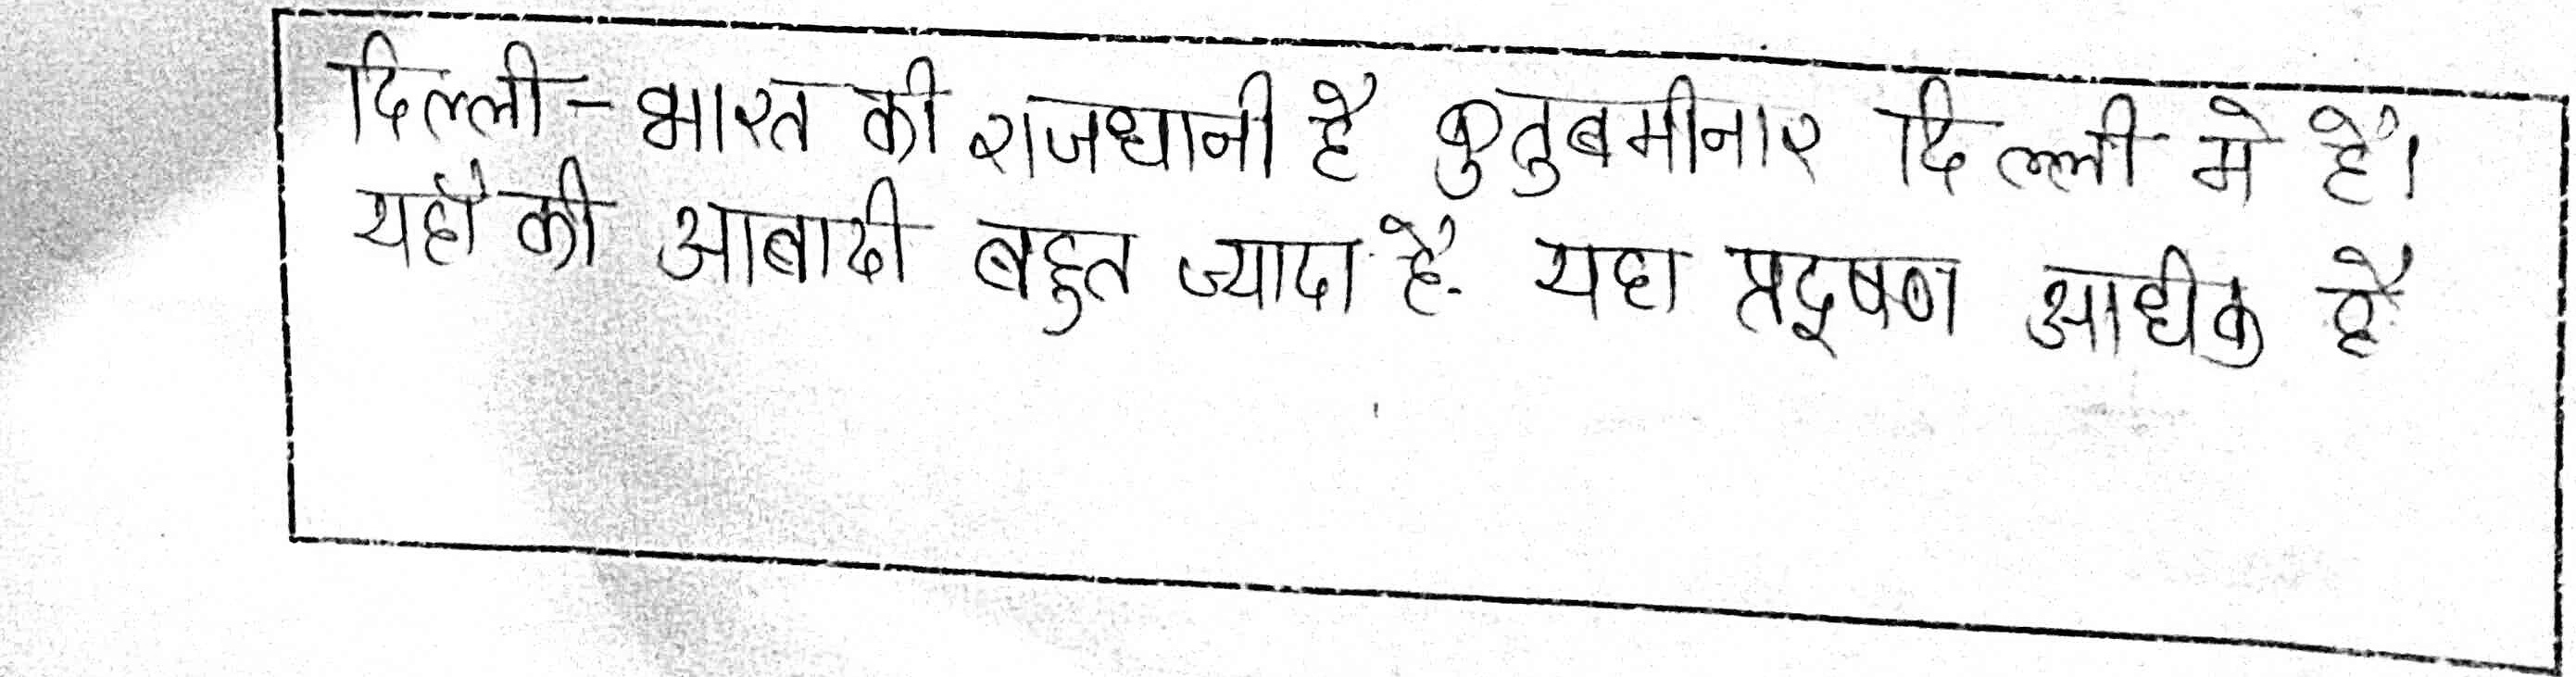 दिल्ली - भारत की राजधानी है कुतुबमीनार दिल्ली मे है।
यहाँ की आबादी बहुत ज्यादा है. यहा प्रदूषण आधीक है